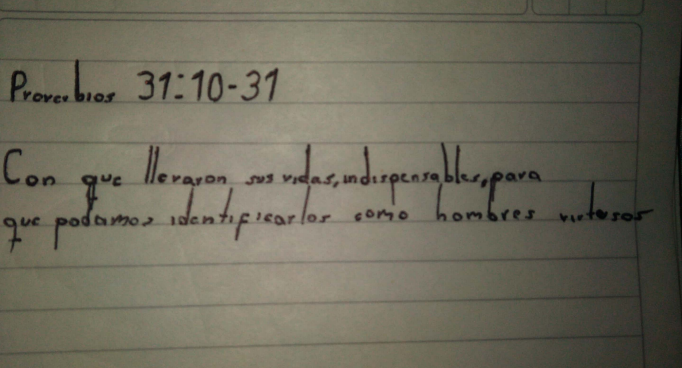 Proverbios 31:10-31
Con que llevaron sus vidas, indispensables, para
que podamos identificarlos como hombres virtusos